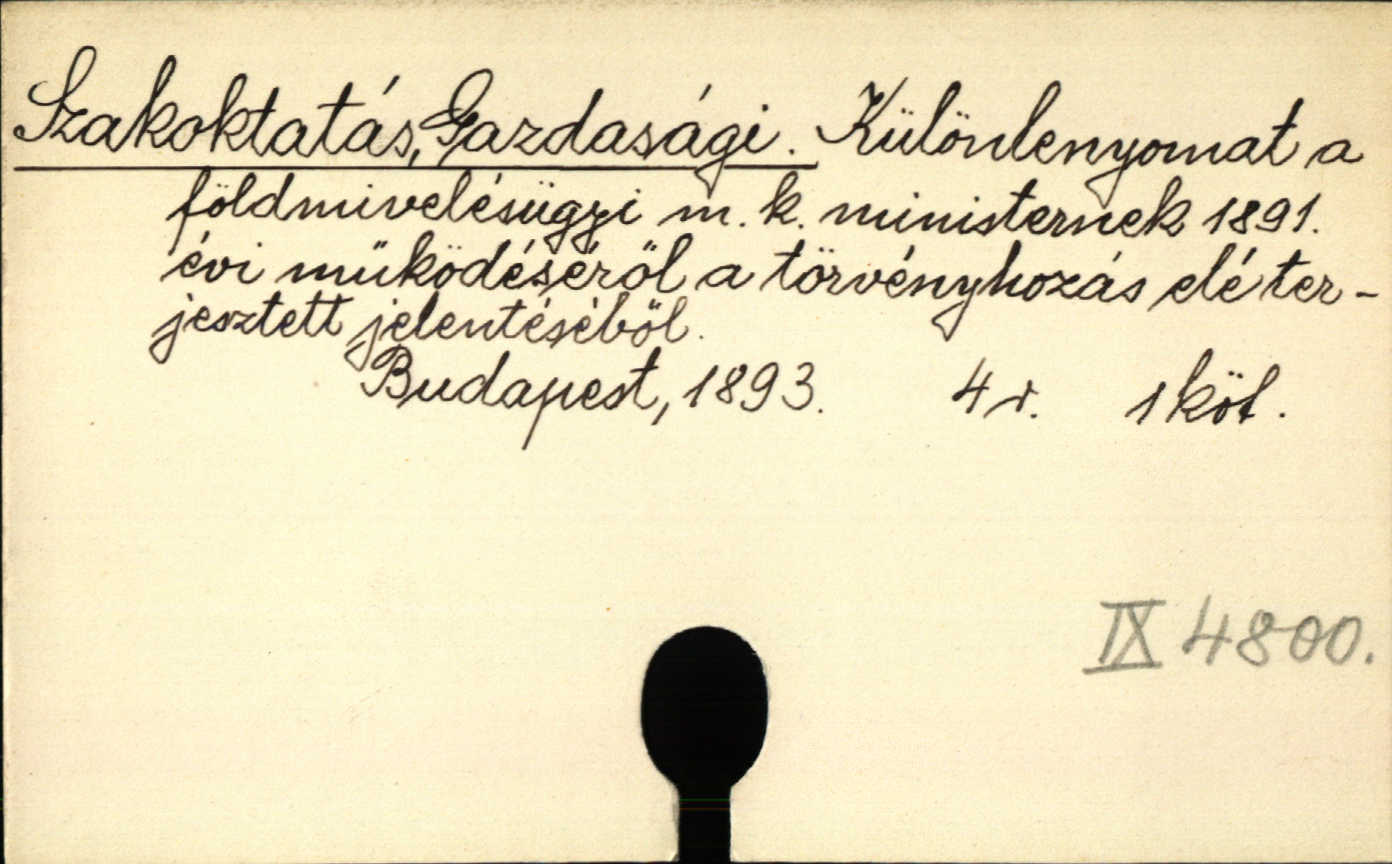 Szakoktatás, Gazdasági. Különlenyomat a
földmivelésügyi m. k. ministernek 1891.
évi működéséről a törvényhozás elé ter-
jesztett jelentéséből.
Budapest, 1893. 4 r. 1 köt.
IX 4800.